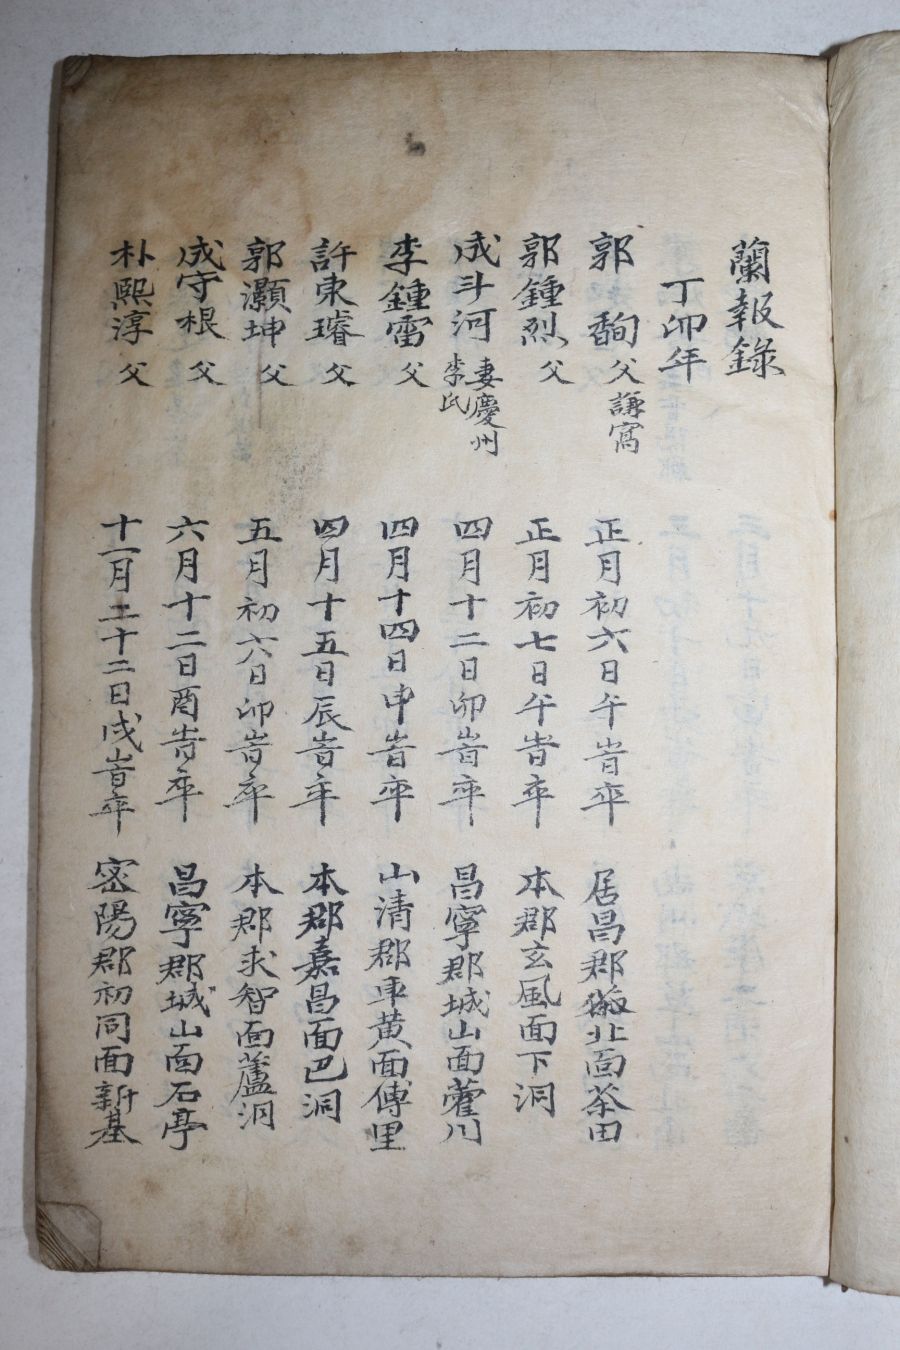 蘭報錄
丁卯年
郭 父 謙窩 正月初六日午旹卒 居昌郡 北面茶田
郭鍾烈 父 正月初七日午旹卒 本郡玄風面下洞
成斗河 妻慶州李氏 四月十二日卯旹卒 昌寧郡城山面藿川
李鍾雷 父 四月十四日申旹卒 山清郡車黃面傅里
許東璿 父 四月十五日辰旹卒 本郡嘉昌面巴洞
郭灝坤 父 五月初六日卯旹卒 本郡求智面蘆洞
成守根 父 六月十二日酉旹卒 昌寧郡城山面石亭
朴熙淳 父 十一月二十二日戌旹卒 密陽郡初同面新基